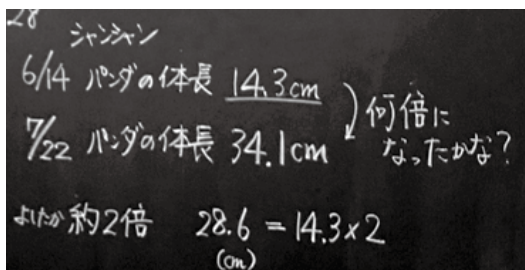 28
シャンシャン
6/14 パンダの体長 14.3cm
7/22 パンダの体長 34.1cm
何倍に
なったかな?
よしたか 約2倍 28.6 = 14.3×2
(cm)